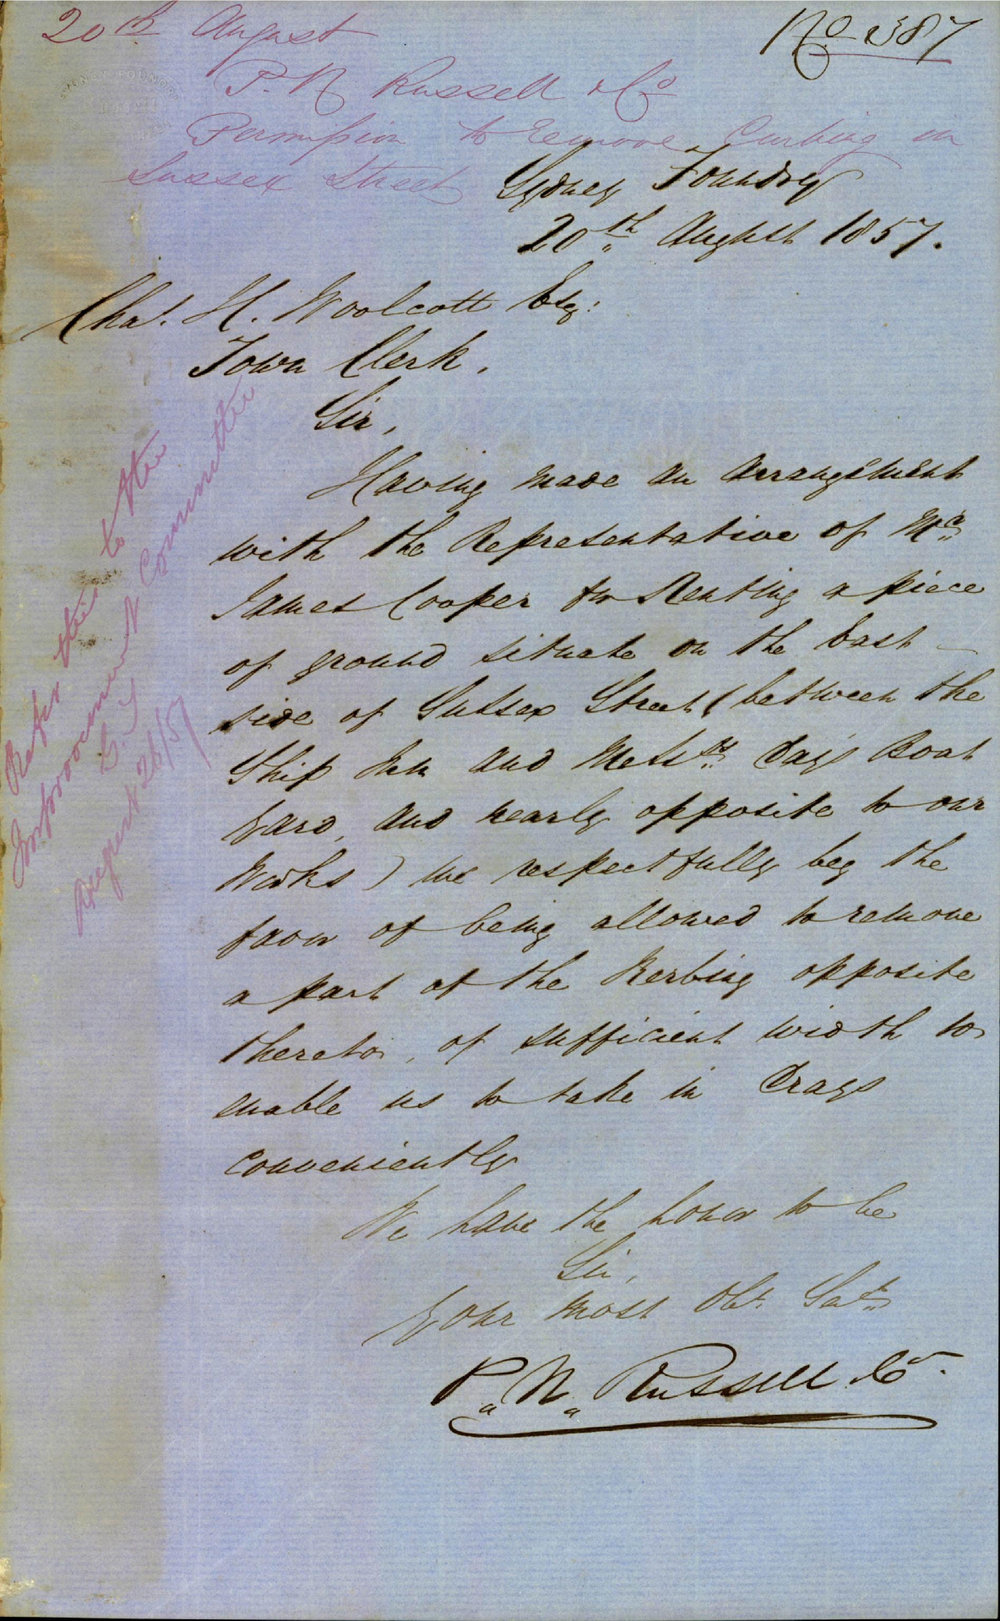 20th August
No 887
P. N Russell & Co
Permission to remove Curbing in
Sussex Street
Sydney Foundry
20th August 1857.
Chas. H. Woolcott Esq:
Town Clerk.
Sir,
Having made an arrangement
with the Representative of Mr
James Cooper for Renting a piece
of ground situate on the East
side of Sussex Street (between the
Ship Inn and Messrs Days Boat
Yard, and nearly opposite to our
Works) we respectfully beg the
favor of being allowed to remove
a part of the Kerbing opposite
thereto, of sufficient width to
enable us to take in Drays
conveniently
We have the honor to be
Sir,
Your most Obt. Svts
P. N. Russell & Co.
Refer this to the
Improvement Committee
August 26/57